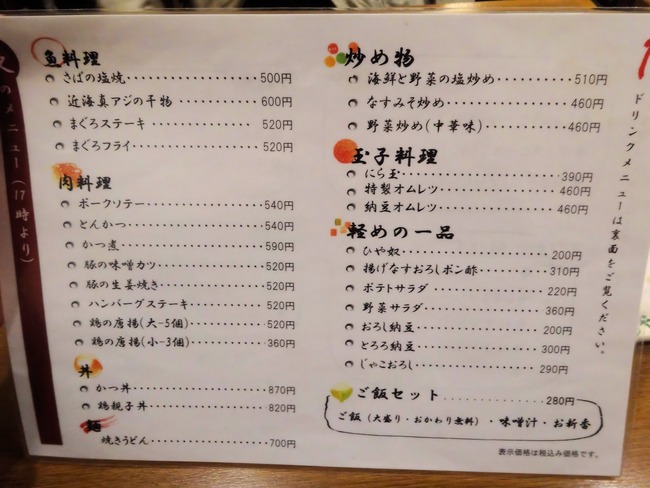 のメニュー（17時より）
魚料理
さばの塩焼 500円
近海真アジの干物 600円
まぐろステーキ 520円
まぐろフライ 520円
肉料理
ポークソテー 540円
とんかつ 540円
かつ煮 590円
豚の味噌カツ 520円
豚の生姜焼き 520円
ハンバーグステーキ 520円
鶏の唐揚(大-5個) 520円
鶏の唐揚(小-3個) 360円
丼
かつ丼 870円
鶏親子丼 820円
麺
焼きうどん 700円
炒め物
海鮮と野菜の塩炒め 510円
なすみそ炒め 460円
野菜炒め(中華味) 460円
玉子料理
にら玉 390円
特製オムレツ 460円
納豆オムレツ 460円
軽めの一品
ひや奴 200円
揚げなすおろしポン酢 310円
ポテトサラダ 220円
野菜サラダ 360円
おろし納豆 200円
とろろ納豆 300円
じゃこおろし 290円
ご飯セット 280円
ご飯（大盛り・おかわり無料）・味噌汁・お新香
表示価格は税込み価格です。
ドリンクメニューは裏面をご覧ください。